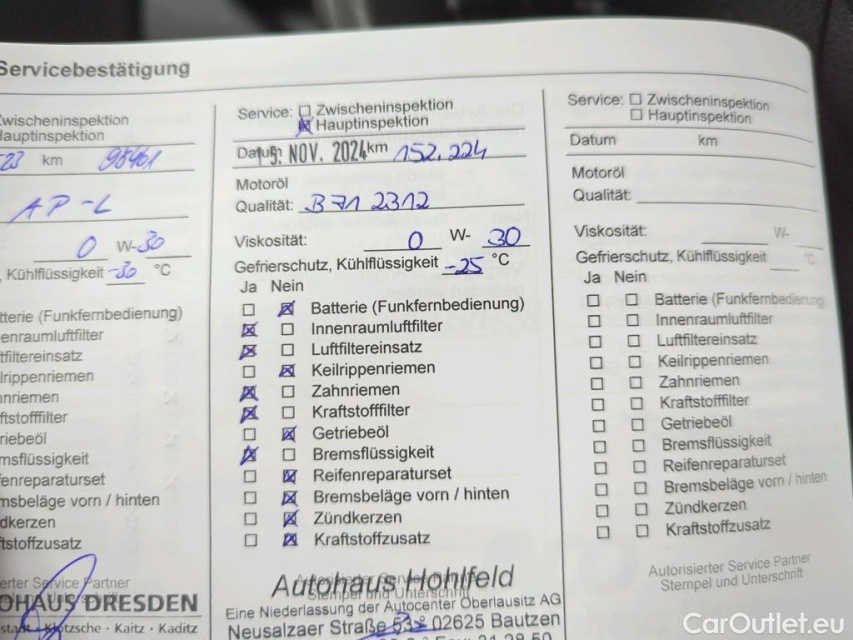 Servicebestätigung
Zwischeninspektion
Hauptinspektion
23 km 98461
AP-L
0 W-30
, Kühlflüssigkeit -30 °C
tterie (Funkfernbedienung)
enraumluftfilter
ftfiltereinsatz
ilrippenriemen
nriemen
ftstofffilter
riebeöl
msflüssigkeit
fenreparaturset
msbeläge vorn / hinten
dkerzen
ftstoffzusatz
erter Service Partner
und Unterschrift
OHAUS DRESDEN
Klotzsche · Kaitz · Kaditz
Service: Zwischeninspektion
Hauptinspektion
Datum 15. NOV. 2024 km 152.224
Motoröl
Qualität: B71 2312
Viskosität: 0 W- 30
Gefrierschutz, Kühlflüssigkeit -25 °C
Ja Nein
Batterie (Funkfernbedienung)
Innenraumluftfilter
Luftfiltereinsatz
Keilrippenriemen
Zahnriemen
Kraftstofffilter
Getriebeöl
Bremsflüssigkeit
Reifenreparaturset
Bremsbeläge vorn / hinten
Zündkerzen
Kraftstoffzusatz
Autohaus Hohlfeld
Stempel und Unterschrift
Eine Niederlassung der Autocenter Oberlausitz AG
Neusalzaer Straße 53 02625 Bautzen
Service: Zwischeninspektion
Hauptinspektion
Datum km
Motoröl
Qualität:
Viskosität: W-
Gefrierschutz, Kühlflüssigkeit °C
Ja Nein
Batterie (Funkfernbedienung)
Innenraumluftfilter
Luftfiltereinsatz
Keilrippenriemen
Zahnriemen
Kraftstofffilter
Getriebeöl
Bremsflüssigkeit
Reifenreparaturset
Bremsbeläge vorn / hinten
Zündkerzen
Kraftstoffzusatz
Autorisierter Service Partner
Stempel und Unterschrift
CarOutlet.eu